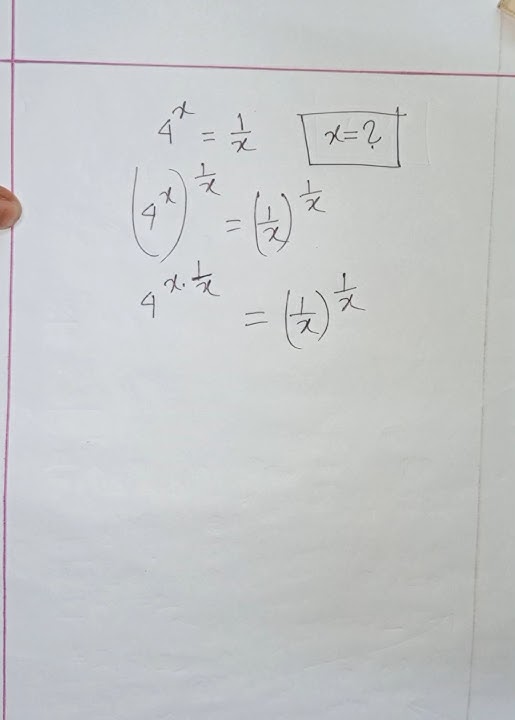 4^x = 1/x   x=?
(4^x)^(1/x) = (1/x)^(1/x)
4^(x·1/x) = (1/x)^(1/x)